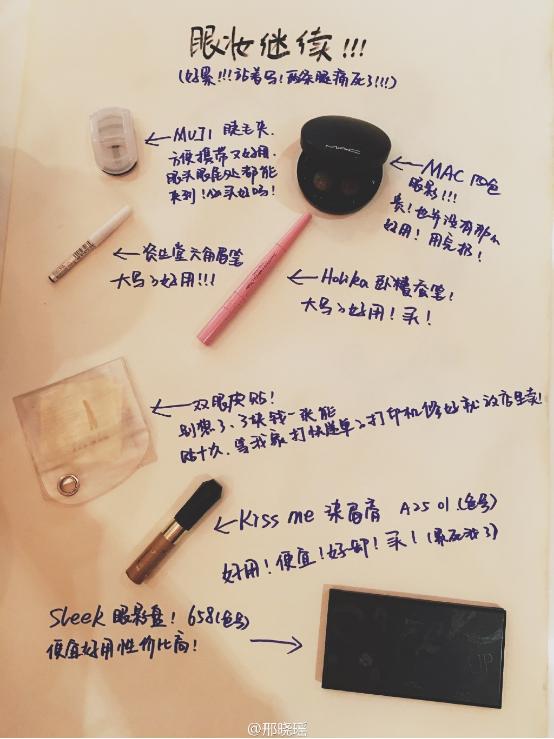 眼妆继续!!!
(好累!!!站着写!两条腿痛死了!!!)
MUJI 睫毛夹.
方便携带又好用.
眼头眼尾处都能
夹到!必买好吗!
MAC
MAC 四色
眼影!!!
贵!也并没有那么
好用!用完扔!
资生堂六角眉笔
大写的好用!!!
Holika 卧蚕笔!
大写的好用!买!
双眼皮贴!
别想了、了块钱一张能
贴十次.等我家打快递单的打印机修好就放店里卖!
Kiss me 染眉膏 A25 01(色号)
好用!便宜!好卸!买!(累死我了)
Sleek 眼影盘!658(色号)
便宜好用性价比高!
@邢晓瑶